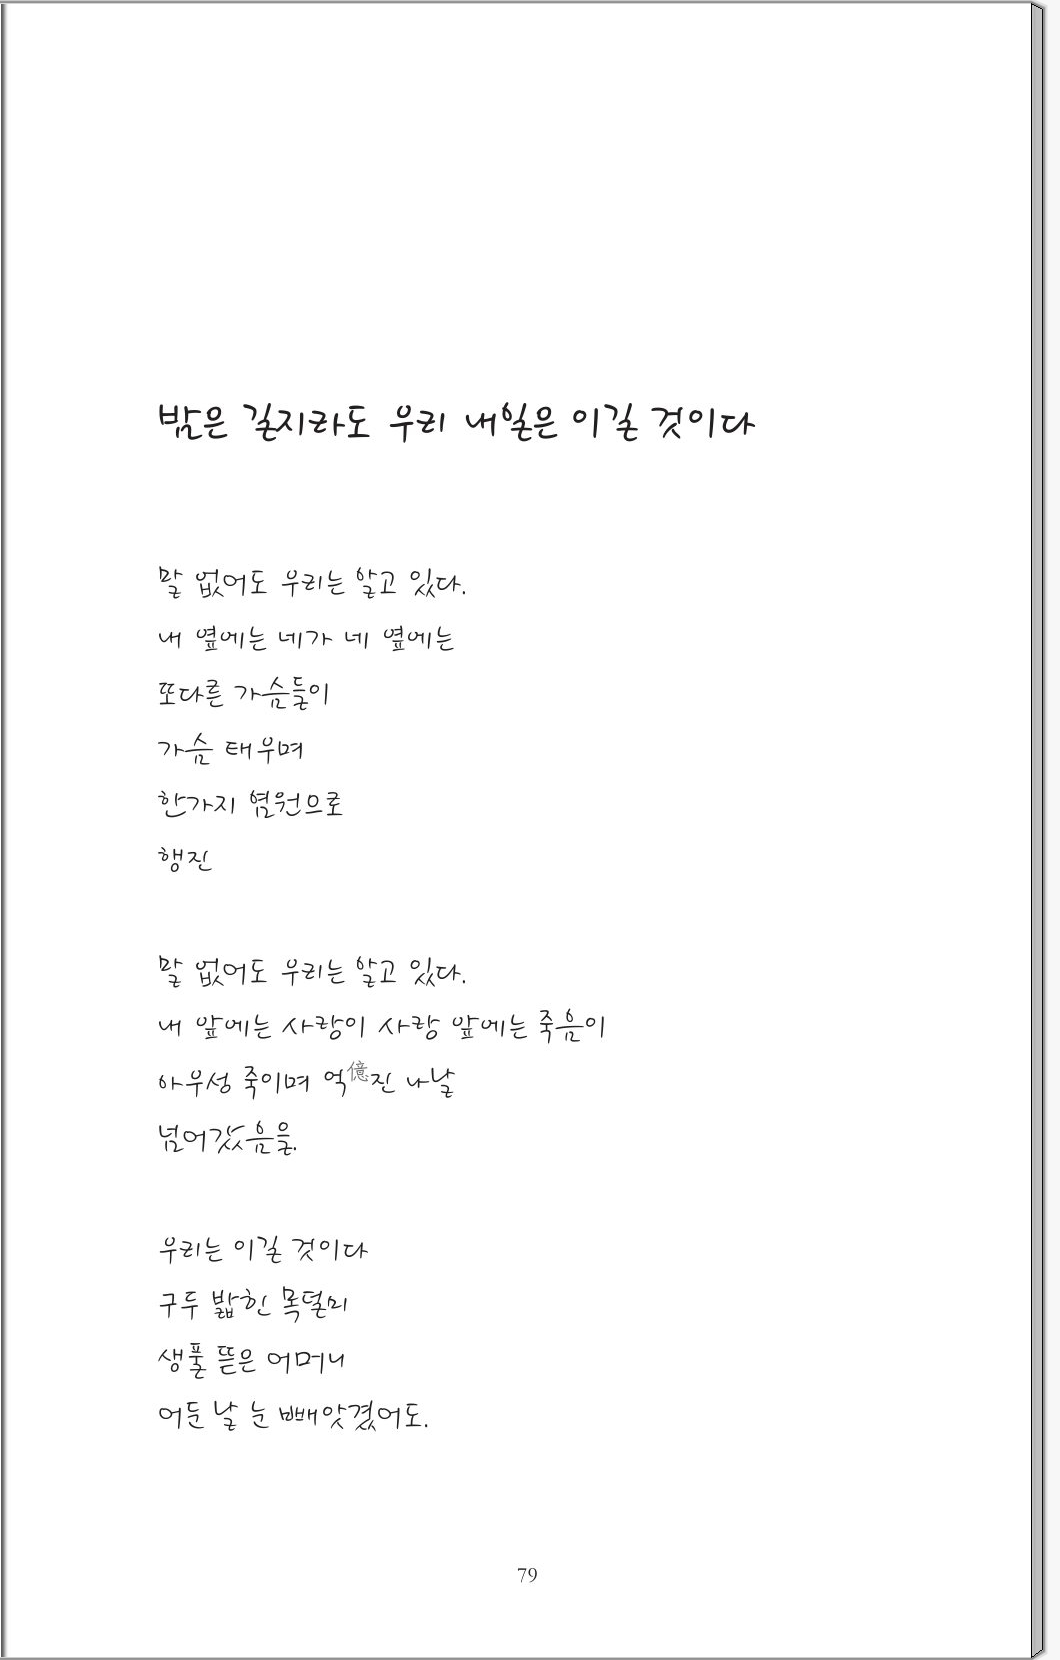 밤은 길지라도 우리 내일은 이길 것이다
말 없어도 우리는 알고 있다.
내 옆에는 네가 네 옆에는
또다른 가슴들이
가슴 태우며
한가지 염원으로
행진
말 없어도 우리는 알고 있다.
내 앞에는 사랑이 사랑 앞에는 죽음이
아우성 죽이며 억億진 나날
넘어갔음을.
우리는 이길 것이다
구두 밟힌 목덜미
생풀 뜯은 어머니
어둔 날 눈 빼앗겼어도.
79